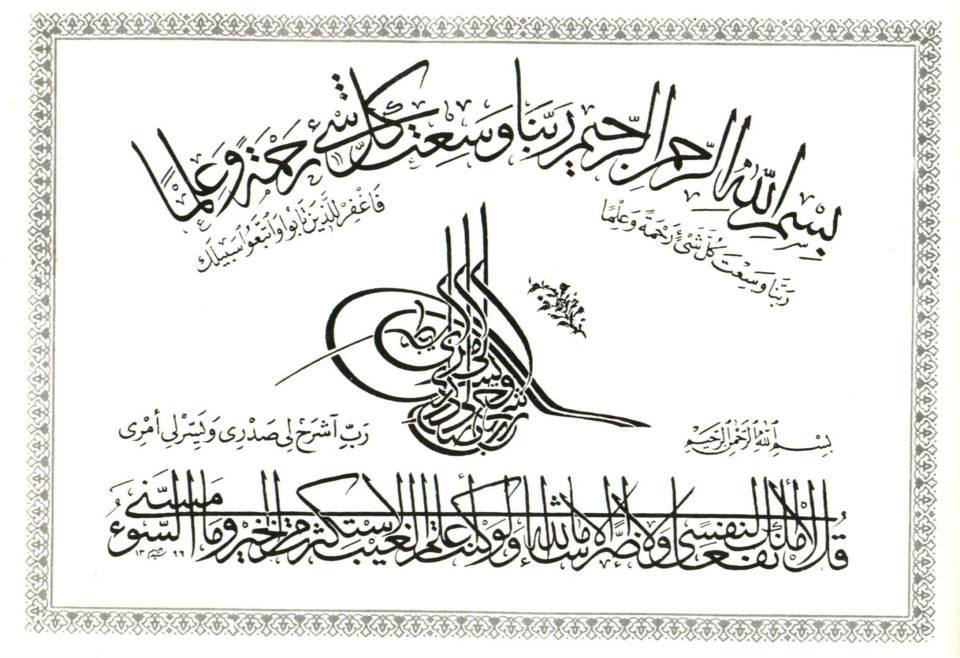 بِسْمِ اللهِ الرَّحْمٰنِ الرَّحِيمِ رَبَّنَا وَسِعْتَ كُلَّ شَيْءٍ رَحْمَةً وَعِلْمًا
رَبَّنَا وَسِعْتَ كُلَّ شَيْءٍ رَحْمَةً وَعِلْمًا
فَاغْفِرْ لِلَّذِينَ تَابُوا وَاتَّبَعُوا سَبِيلَكَ
رب اشرح لي صدري ويسر لي أمري
بِسْمِ ٱللَّهِ ٱلرَّحْمٰنِ ٱلرَّحِيمِ
رَبِّ ٱشْرَحْ لِي صَدْرِى وَيَسِّرْ لِي أَمْرِى
قُل لا أملك لنفسي نفعا ولا ضرّا إلا ما شاء الله ولو كنت أعلم الغيب لاستكثرت من الخير وما مسّنيَ السّوءُ
١٣٩٦